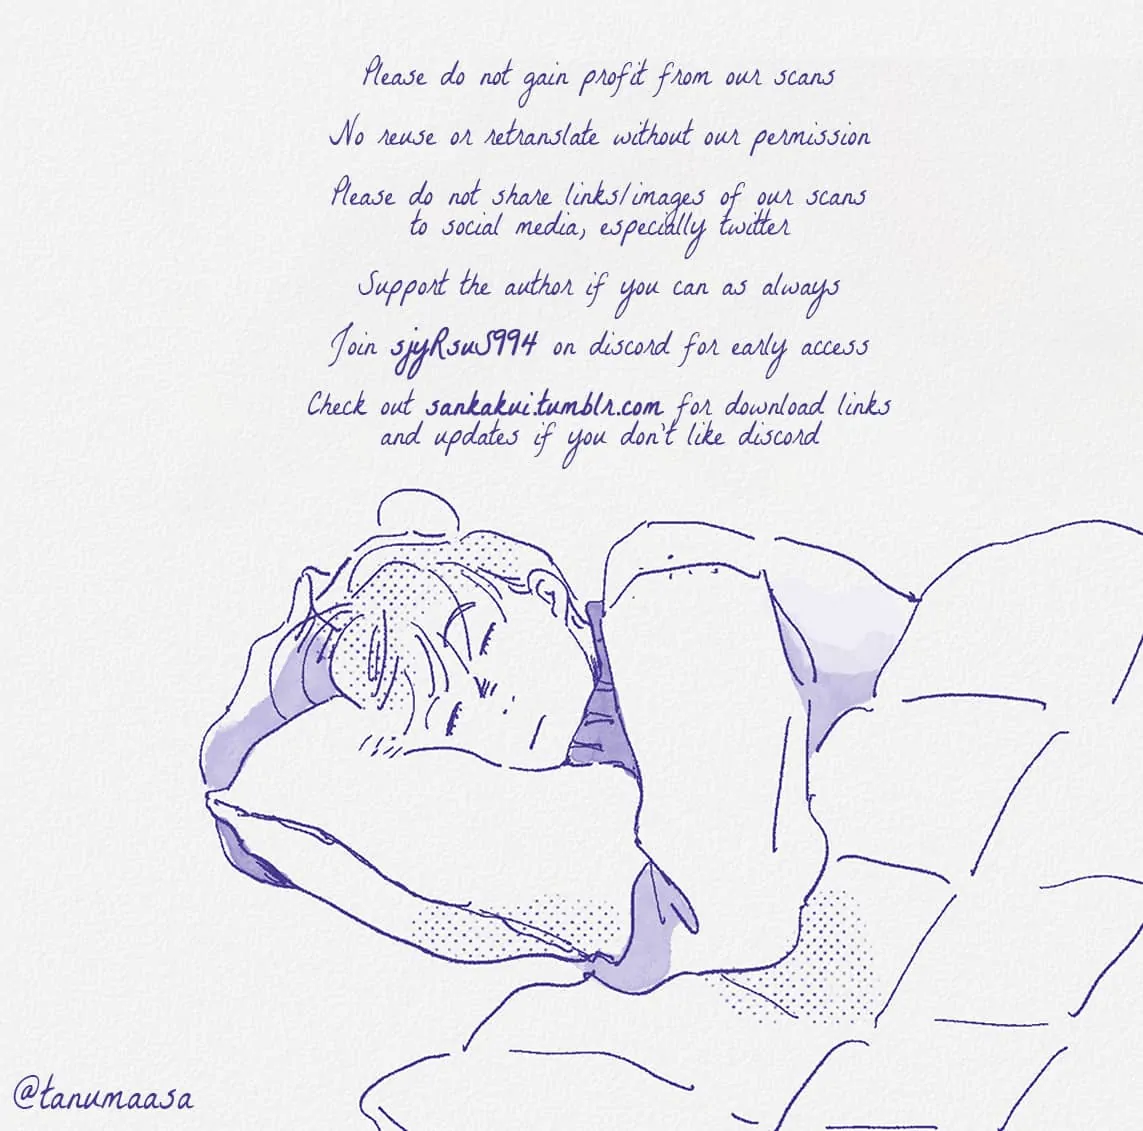 Please do not gain profit from our scans
No reuse or retranslate without our permission
Please do not share links/images of our scans
to social media, especially twitter
Support the author if you can as always
Join sjyRsuS994 on discord for early access
Check out sankakui.tumblr.com for download links
and updates if you don't like discord
@tanumaasa